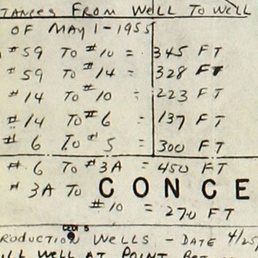 TANCES FROM WELL TO WELL
OF MAY 1-1955
#59 TO #10 = 345 FT
#59 TO #14 = 328 FT
#14 TO #10 = 223 FT
#14 TO #6 = 137 FT
#6 TO #5 = 300 FT
#6 TO #3A = 450 FT
#3A TO CONCE
#10 = 270 FT
RODUCTION WELLS - DATE 4/25/
WELL AT POINT